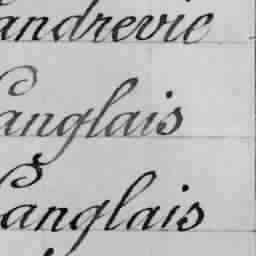 andrevie
anglais
anglais